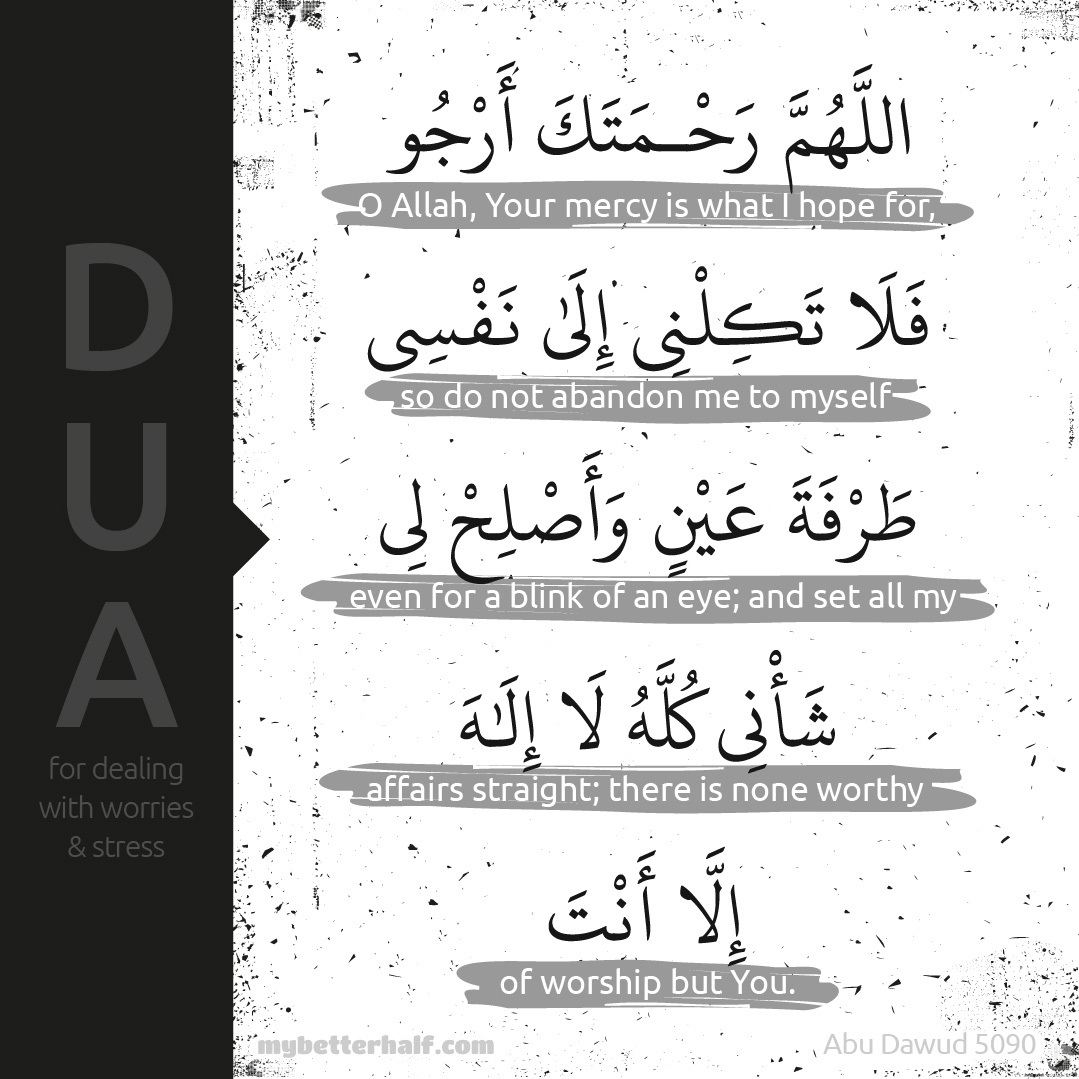 DUA
for dealing
with worries
& stress
اللَّهُمَّ رَحْـمَتَكَ أَرْجُو
O Allah, Your mercy is what I hope for,
فَلَا تَكِلْنِي إِلَىٰ نَفْسِي
so do not abandon me to myself
طَرْفَةَ عَيْنٍ وَأَصْلِحْ لِي
even for a blink of an eye; and set all my
شَأْنِي كُلَّهُ لَا إِلَـٰهَ
affairs straight; there is none worthy
إِلَّا أَنْتَ
of worship but You.
mybetterhalf.com
Abu Dawud 5090